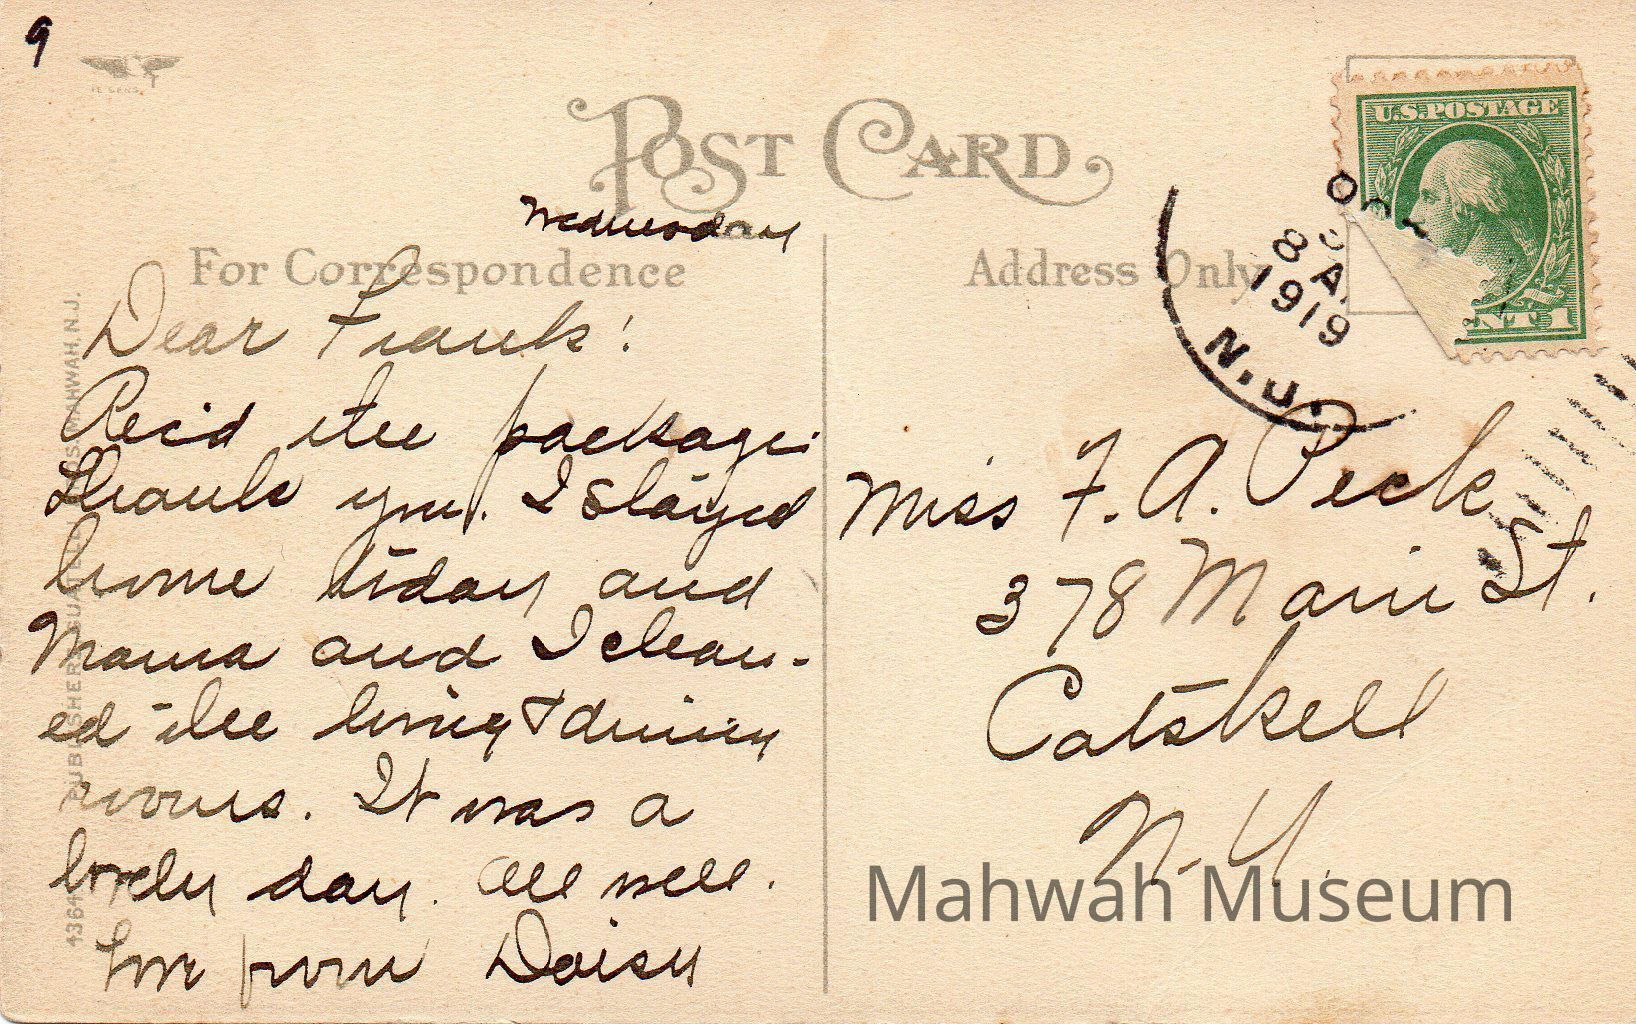 9
POST CARD
Wednesday
For Correspondence
Address Only
U.S. POSTAGE
NT 1
OCT
8 A.
1919
N.J.
Dear Frank!
Rec'd the package.
Thank you. I stayed
home today and
Mama and I clean-
ed the living & dining
rooms. It was a
lovely day. All well.
Love from Daisy
Miss F. A. Peck
378 Main St.
Catskill
N.Y.
PUBLISHERS MAHWAH, N.J.
Mahwah Museum